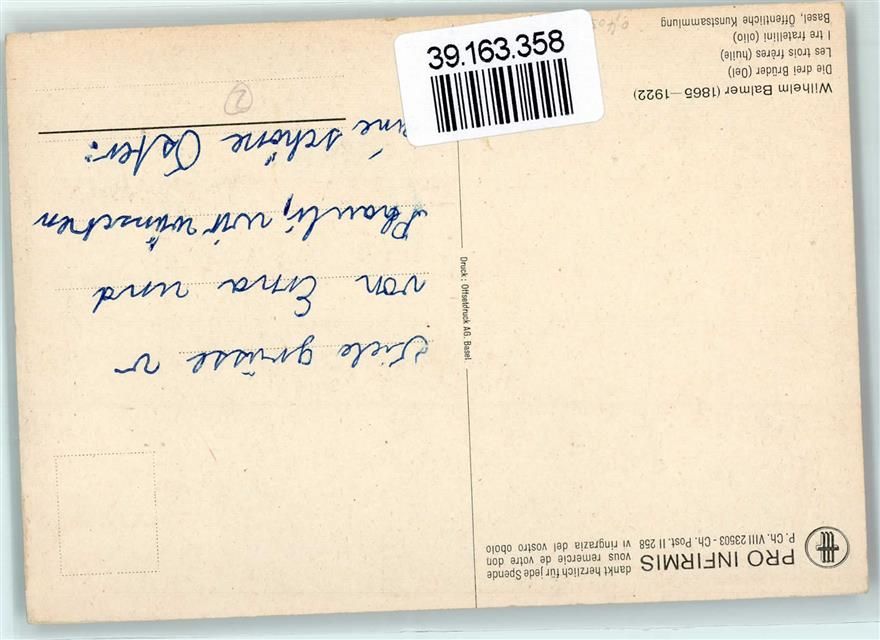 39.163.358
PRO INFIRMIS
P. Ch. VIII 23503 - Ch. Post. II 258
dankt herzlich für jede Spende
vous remercie de votre don
vi ringrazia del vostro obolo
Wilhelm Balmer (1865—1922)
Die drei Brüder (Oel)
Les trois frères (huile)
I tre fratellini (olio)
Basel, Öffentliche Kunstsammlung
Druck: Offsetdruck AG. Basel
Viele grüsse v
von Erna und
wir wünschen
schöne Oster:
2